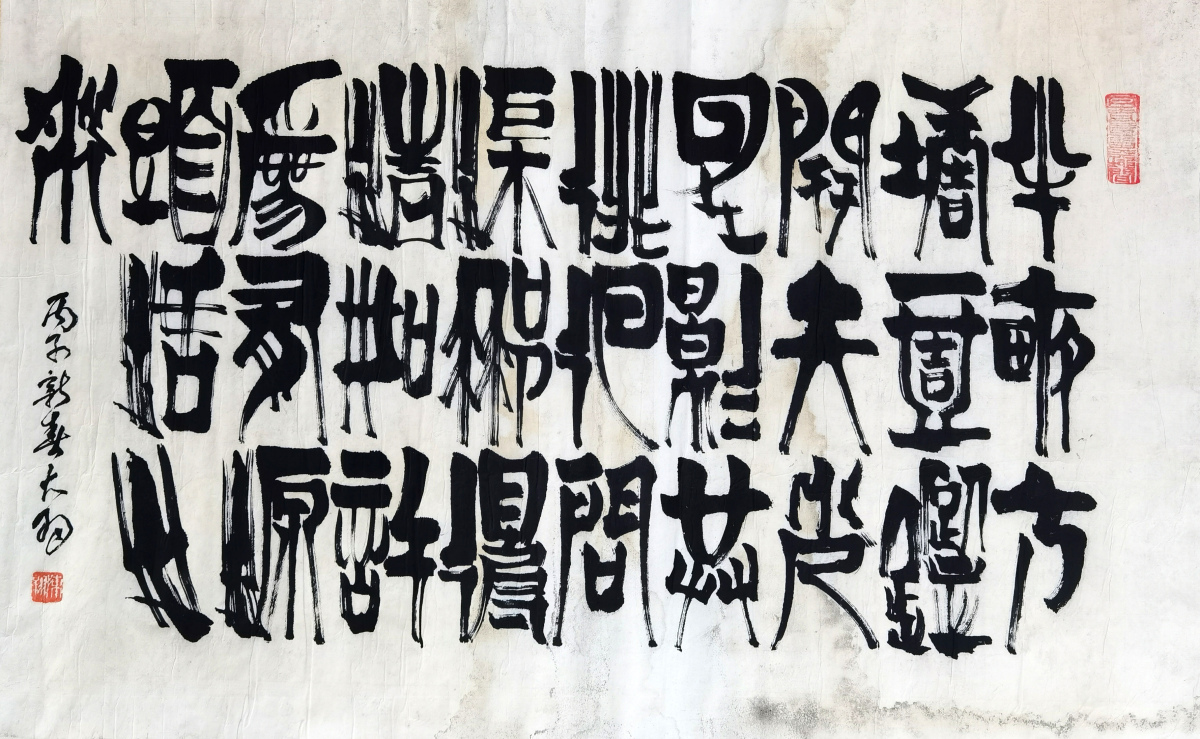 半畝方
塘壹鑑
開天光
雲影共
徘徊問
渠那得
清如許
為有源
頭活水
來
丙子新春大羽